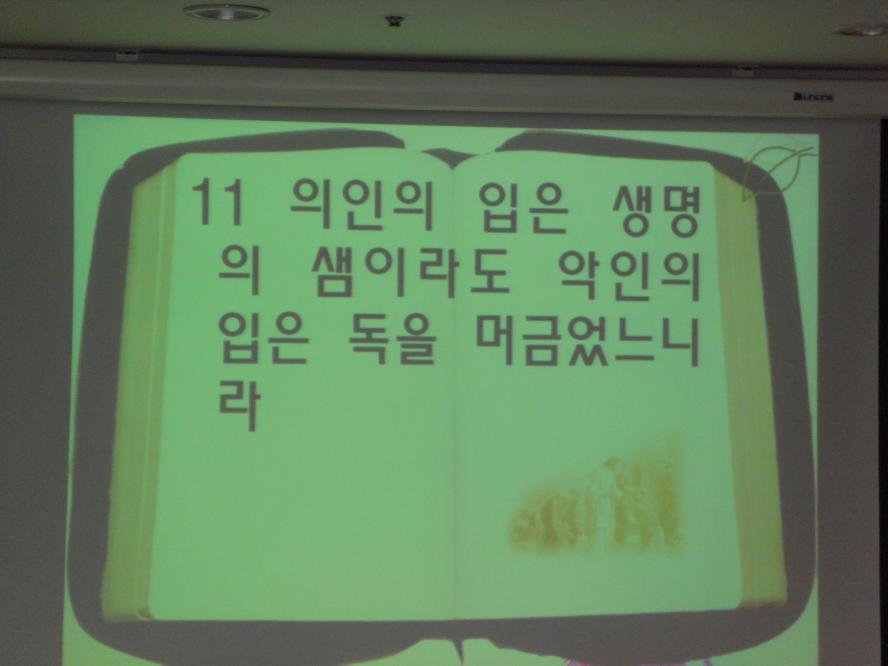 11 의인의 입은 생명
의 샘이라도 악인의
입은 독을 머금었느니
라